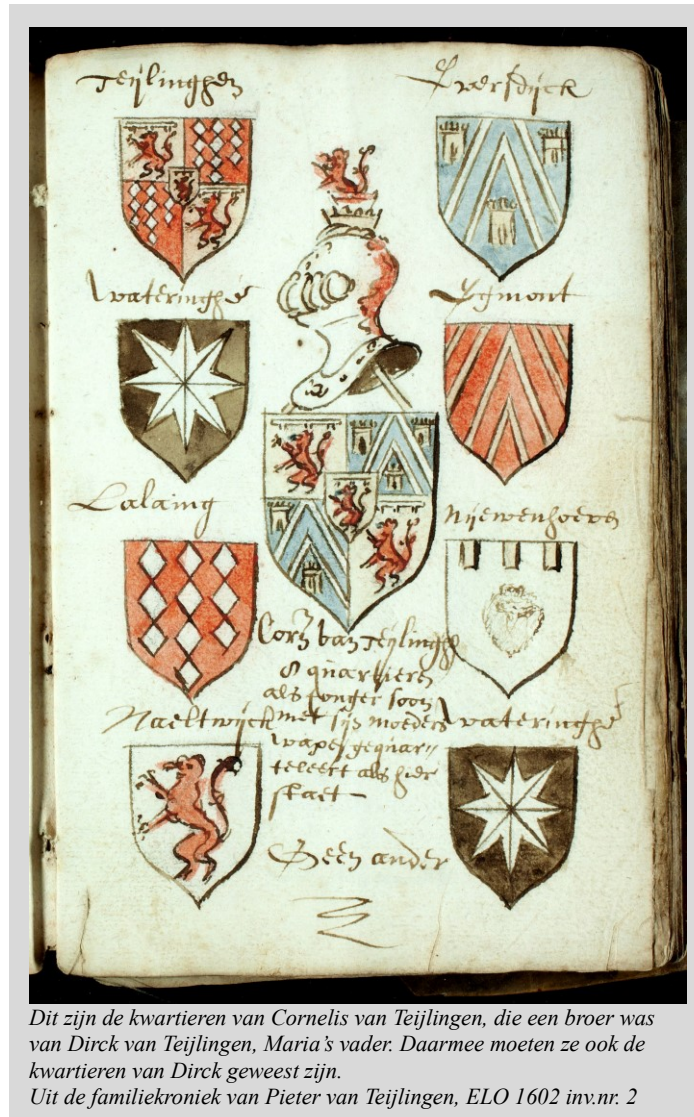 Teijlinghen
Eversdijck
Wateringhe
Egmont
Lalaing
Nijewenhoeve
Corn van Teijlinghe
8 quartieren
als jonger soon
Naeltwijck met sijn moeders Wateringhe
wapen gequar//
teleert als hier
staet —
Geen ander
Dit zijn de kwartieren van Cornelis van Teijlingen, die een broer was
van Dirck van Teijlingen, Maria's vader. Daarmee moeten ze ook de
kwartieren van Dirck geweest zijn.
Uit de familiekroniek van Pieter van Teijlingen, ELO 1602 inv.nr. 2